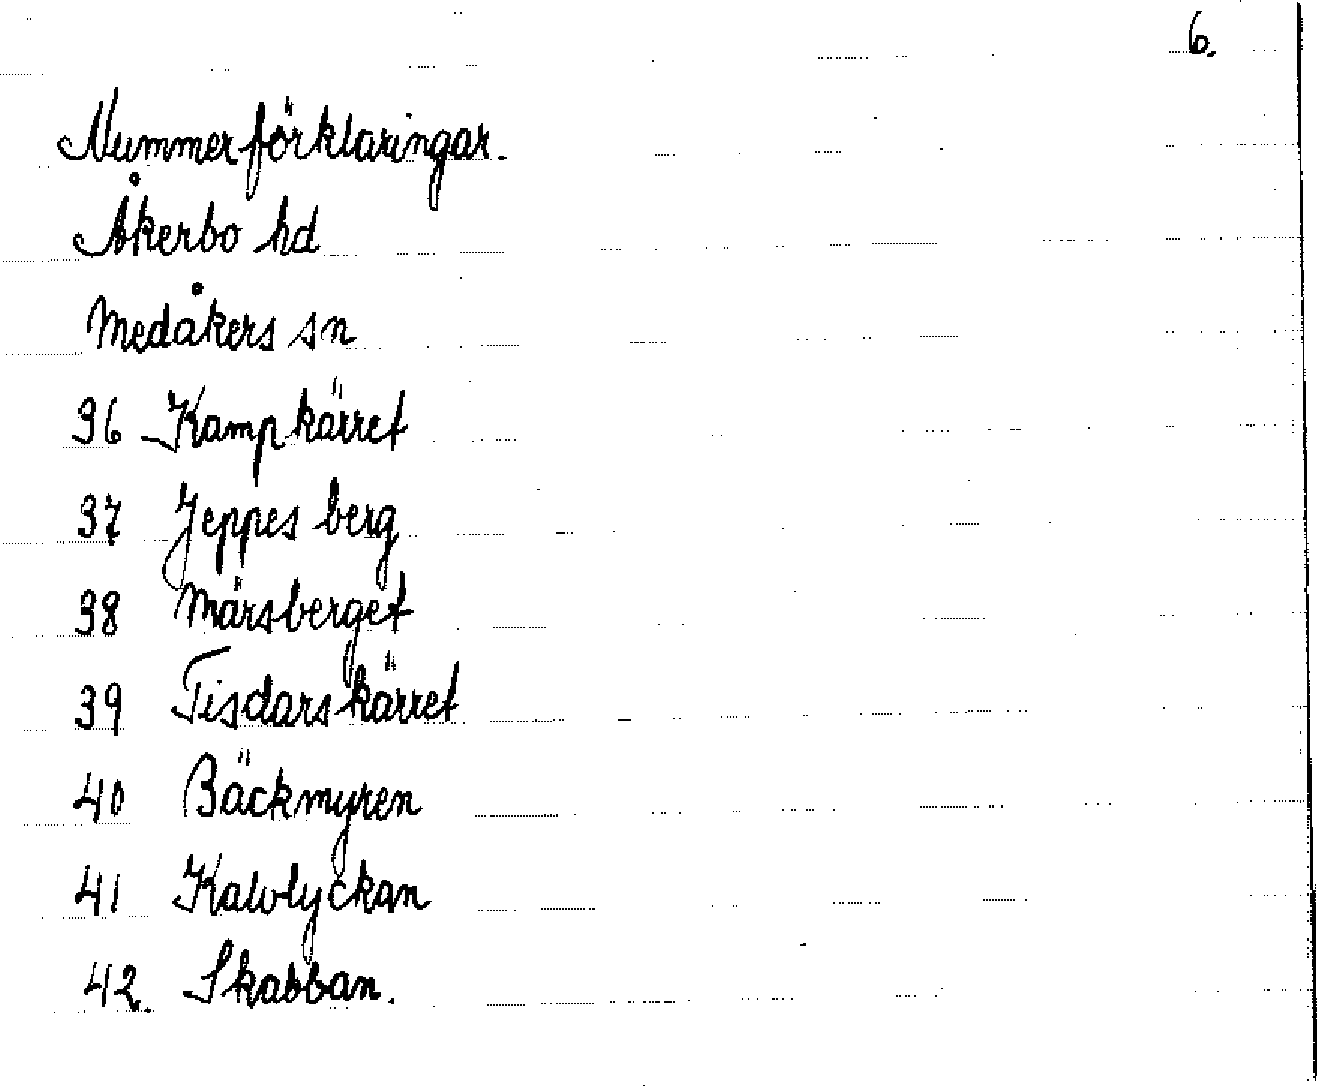 6.
Nummerförklaringar.
Åkerbo hd
Medåkers sn
36 Kampkärret
37 Jeppes berg
38 Märsberget
39 Tisdarskärret
40 Bäckmyren
41 Kalvlyckan
42. Skabban.